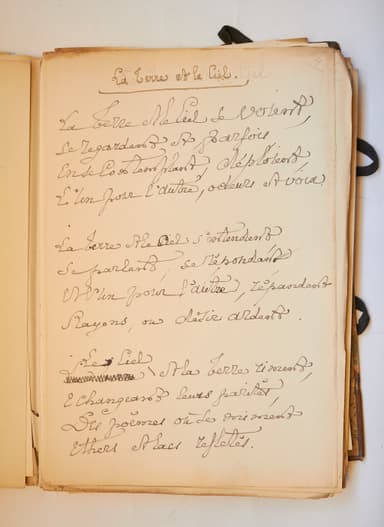 La Terre et le Ciel.
La Terre et le Ciel se voient,
se regardent et parfois
En se contemplant déploient,
L'un pour l'autre, odeurs et voix
La Terre et le Ciel s'entendent
Se parlant, se répondant
Et l'un pour l'autre, répandent
Rayons, ou désir ardent.
Le Ciel
et la Terre riment,
Echangeant leurs parités,
Des poëmes où se miment
Ethers et lacs reflétés.